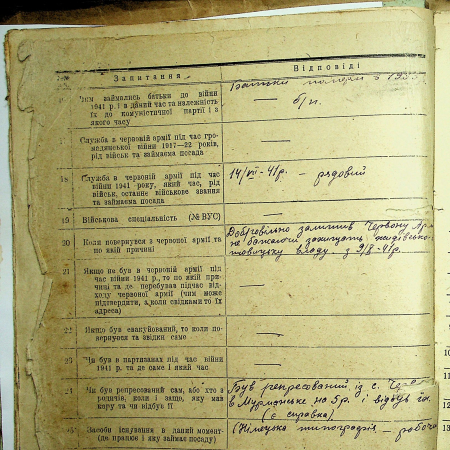 Запитання
Відповіді
Чим займались батьки до війни
1941 р. і в даний час та належність
їх до комуністичної партії і з
якого часу
Батьки померли в
— б/п.
Служба в червоній армії під час гро-
мадянської війни 1917—22 років,
рід військ та займаєма посада
—
18
Служба в червоній армії під час
війни 1941 року, який час, рід
військ, останнє військове звання
та займаєма посада
14/VII-41р. — рядовий
19
Військова спеціальність (№ ВУС)
—
20
Коли повернувся з червоної армії та
по якій причині
Добровільно залишив Червону Ар
не бажаючи захищать жидівсько-
владу з 9/8-41р.
21
Якщо не був в червоній армії під
час війни 1941 р., то по якій при-
чині та де перебував підчас від-
ходу червоної армії (чим може
підтвердити, а коли свідками то їх
адреса)
—
22
Якщо був евакуйований, то коли по-
вернувся та звідки саме
—
23
Чи був в партизанах під час війни
1941 р. та де саме і який час
—
24
Чи був репресований сам, або хто з
родичів, коли і защо, яку мав
кару та чи відбув її
Був репресований із с.
в Мурманське на 5р. і відбув
(є справка)
25
Засоби існування в даний момент
(де працює і яку займає посаду)
(Німецька типографія — робоч
10
11
12
13